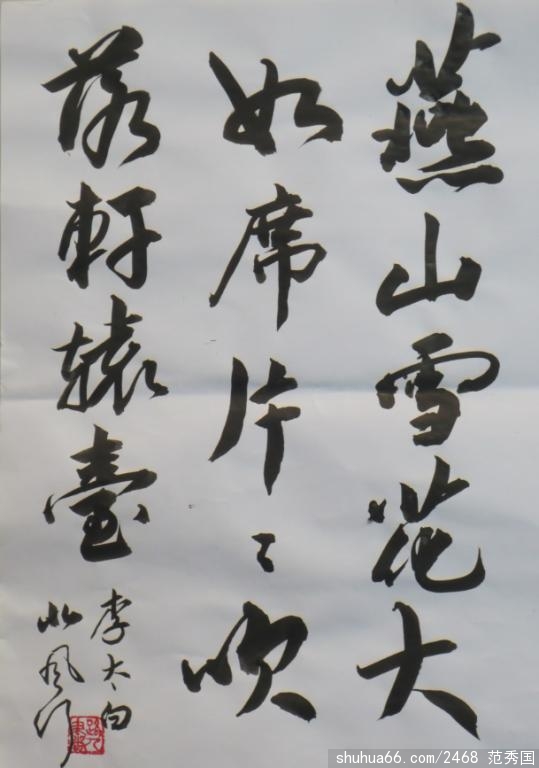 燕山雪花大
如席片〻吹
落軒辕臺
李太白
北风行
shuhua66.com/2468 范秀国